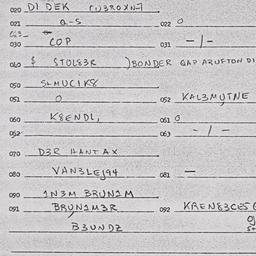 020 DI DEK CU3ROXN7
021 a-S 022 0
030 COP 031 -/-
040 $ STOL83R )BONDER GAP ARUFTON DI
050 SLMUCIK8
051 0 052 KAL3MUTNE
060 K8ENDL, 061 0
062 063 -/-
070 D3R HANTAX
080 VAN3LEJ94 081 —
090 1N3M BRUN1M
091 BRUN1M3R 092 KREN83CES
B3UNDZ